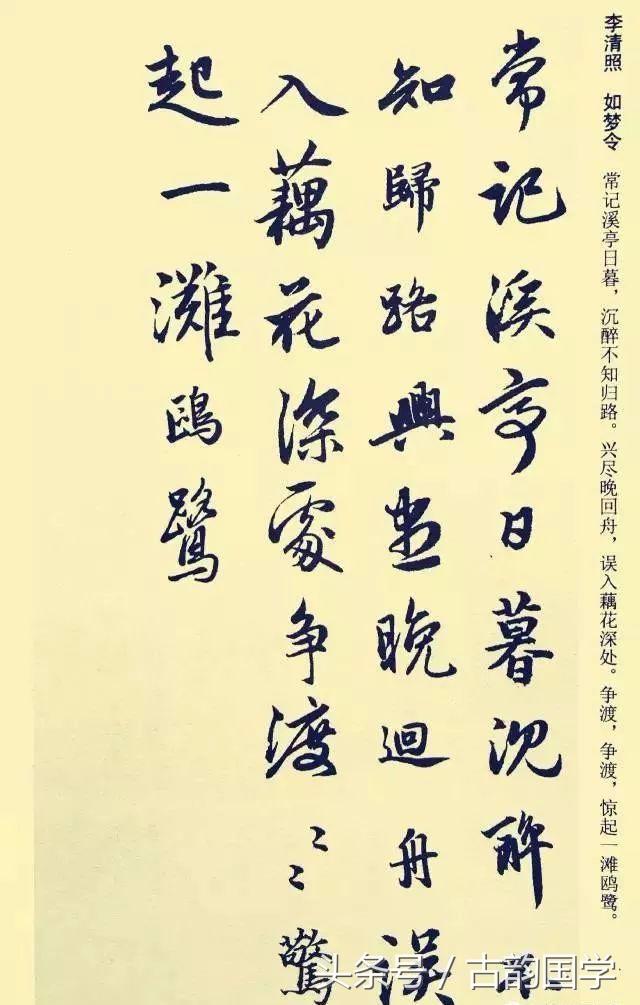 李清照 如梦令 常记溪亭日暮，沉醉不知归路。兴尽晚回舟，误入藕花深处。争渡，争渡，惊起一滩鸥鹭。
常記溪亭日暮沉酔不
知歸路興盡晚迴舟誤
入藕花深處争渡〻〻驚
起一灘鷗鷺
头条号 / 古韵国学